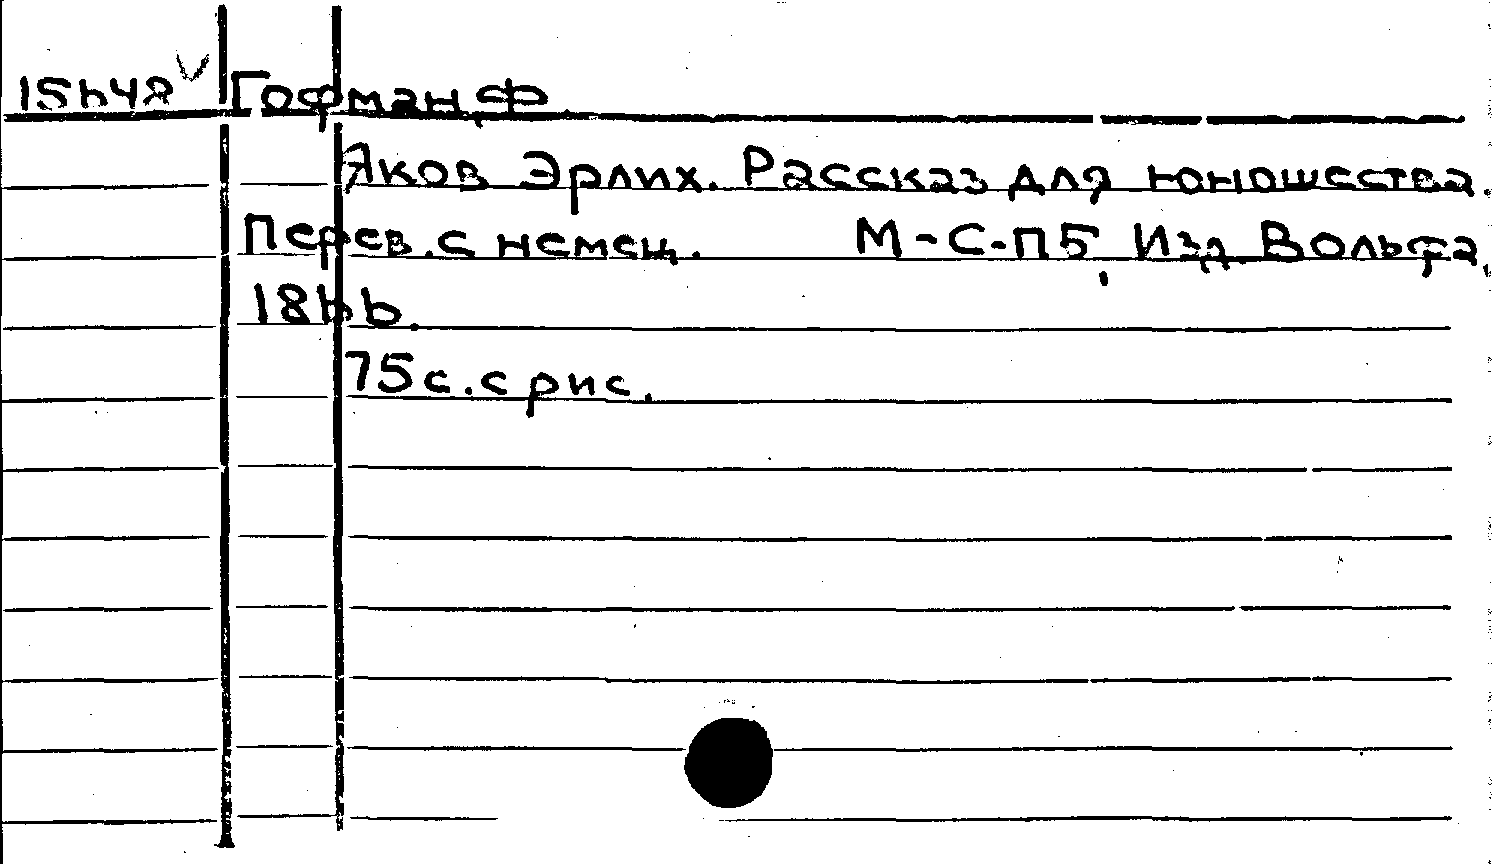 15648 Гофман, Ф.
Яков Эрлих. Рассказ для юношества.
Перев. с немец. М-С-ПБ, Изд. Вольфа,
1866.
75 с. с рис.